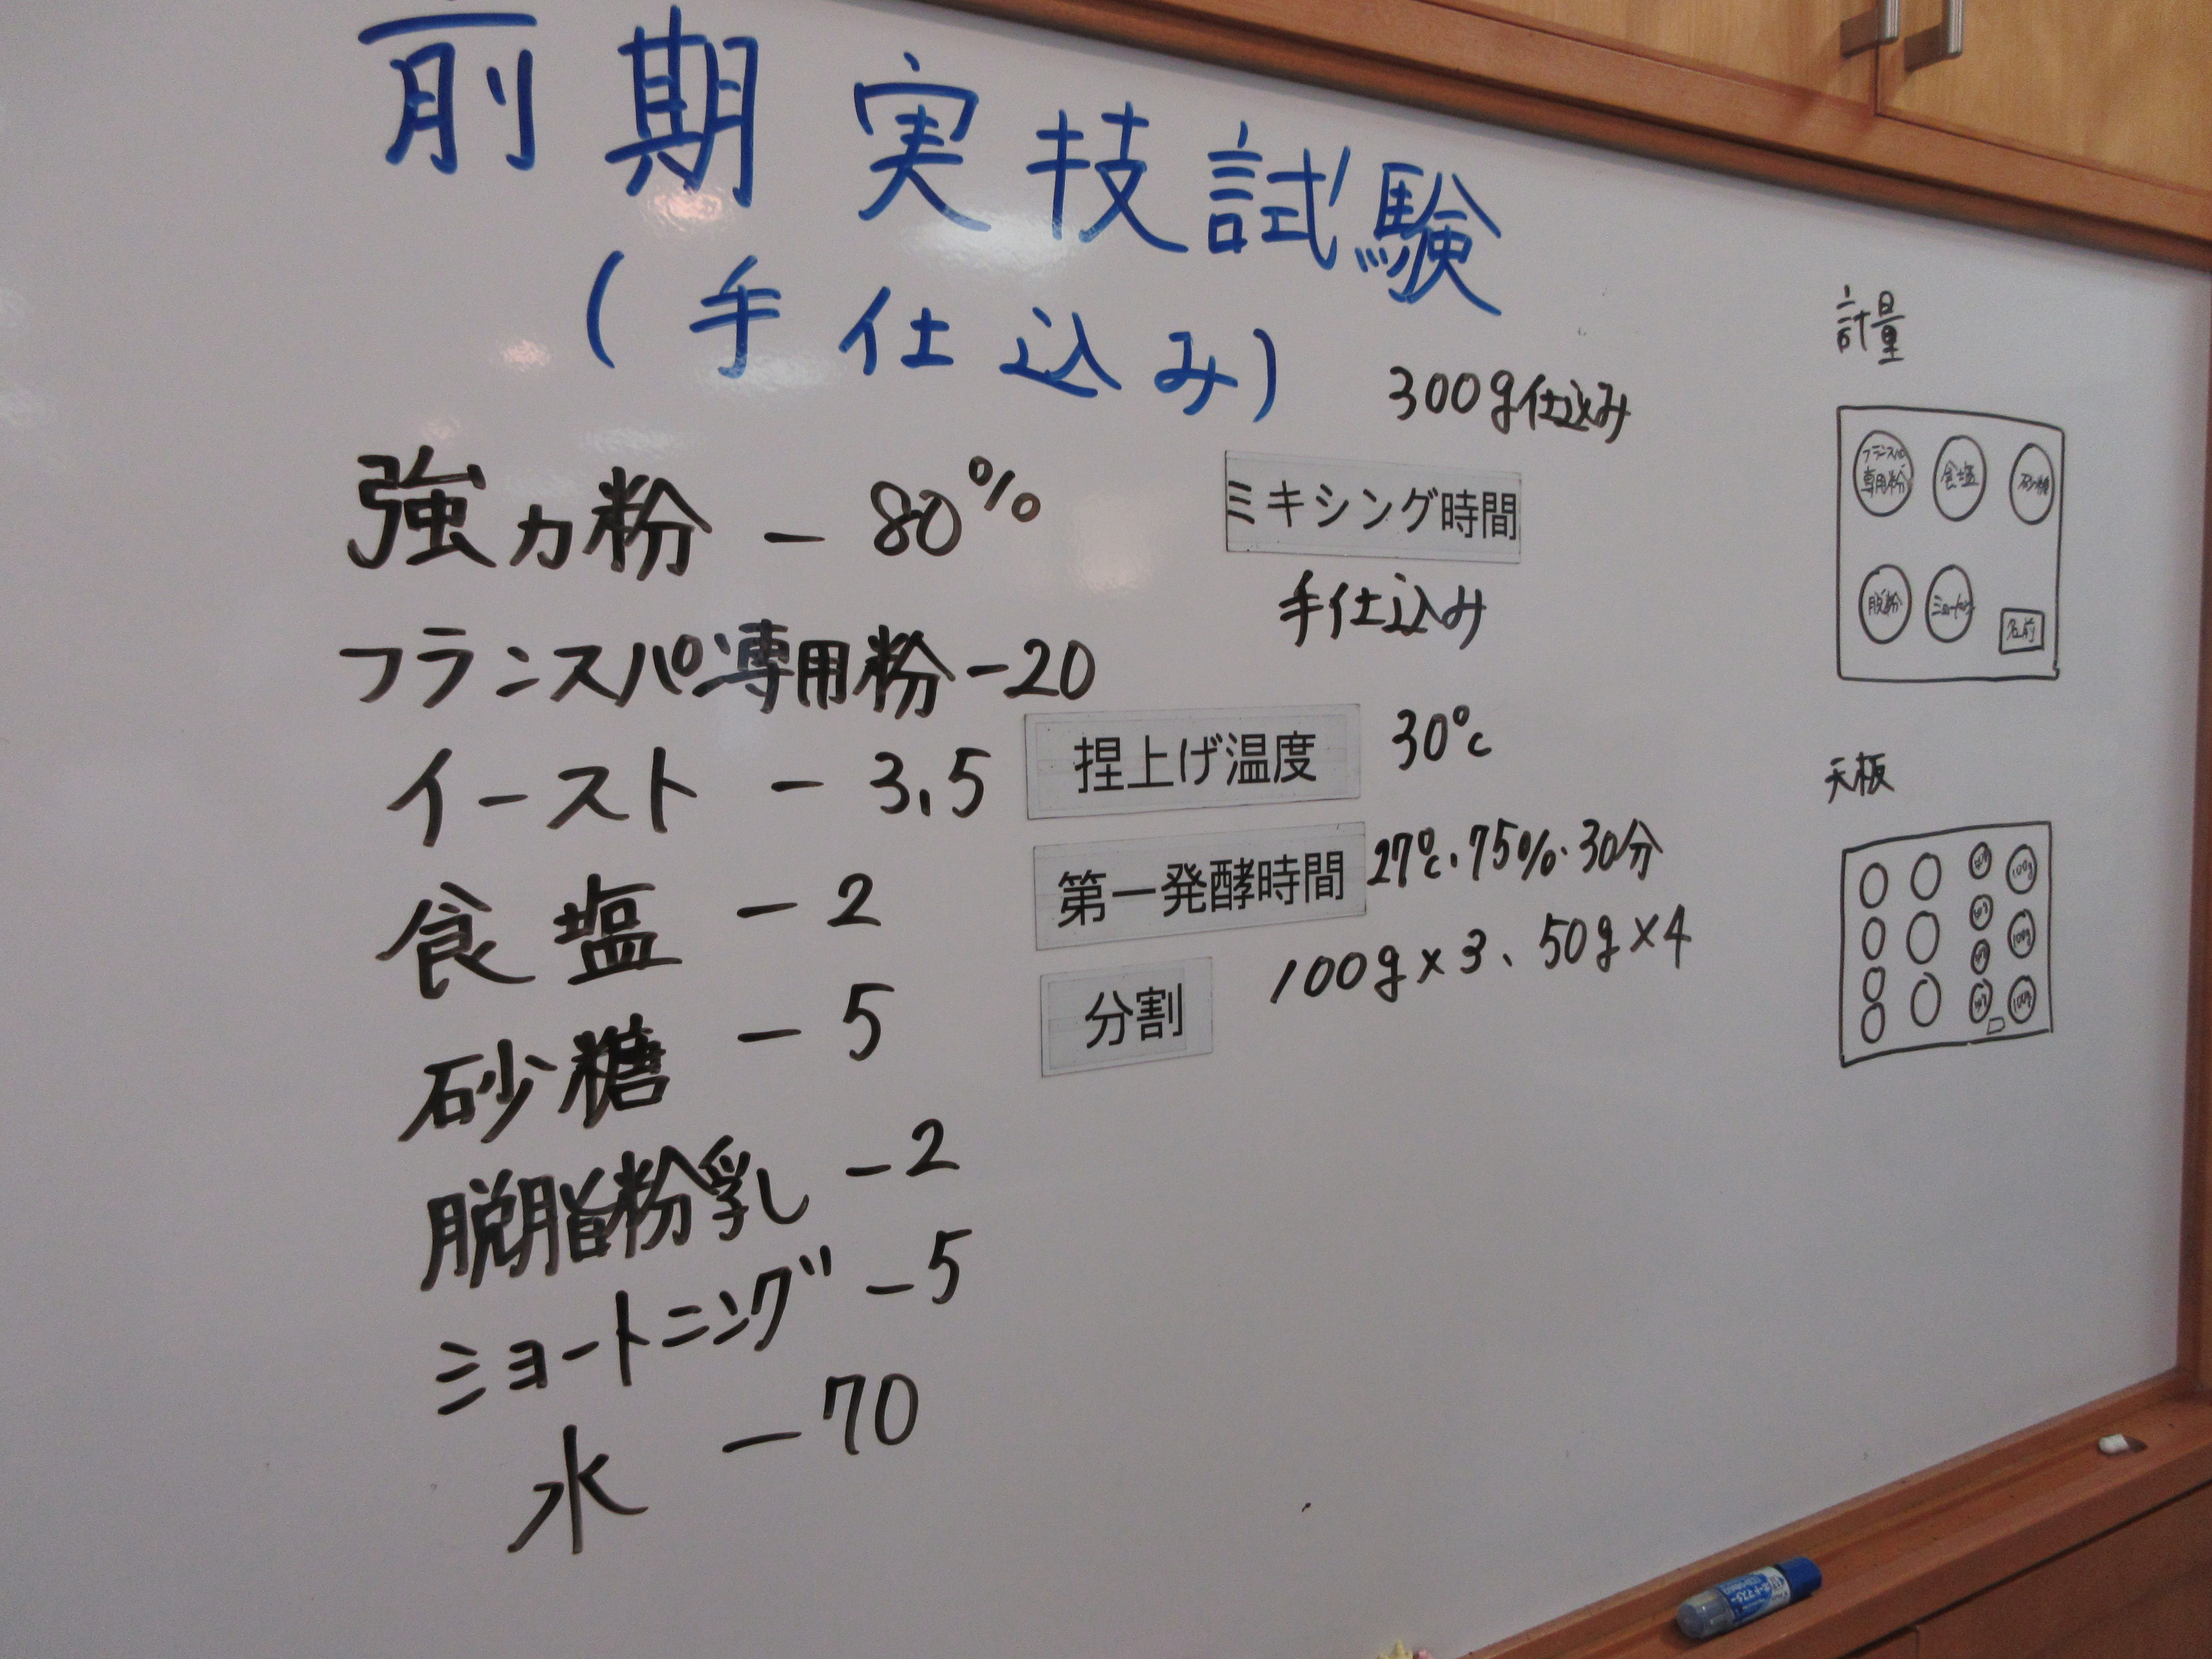 前期実技試験
(手仕込み)
300g仕込み
強力粉 - 80%
フランスパン専用粉 - 20
イースト - 3.5
食塩 - 2
砂糖 - 5
脱脂粉乳 - 2
ショートニング - 5
水 - 70
ミキシング時間
手仕込み
捏上げ温度 30℃
第一発酵時間 27℃・75%・30分
分割 100g×3、50g×4
計量
フランスパン
専用粉
食塩
砂糖
脱粉
名前
天板
100g
100g
100g